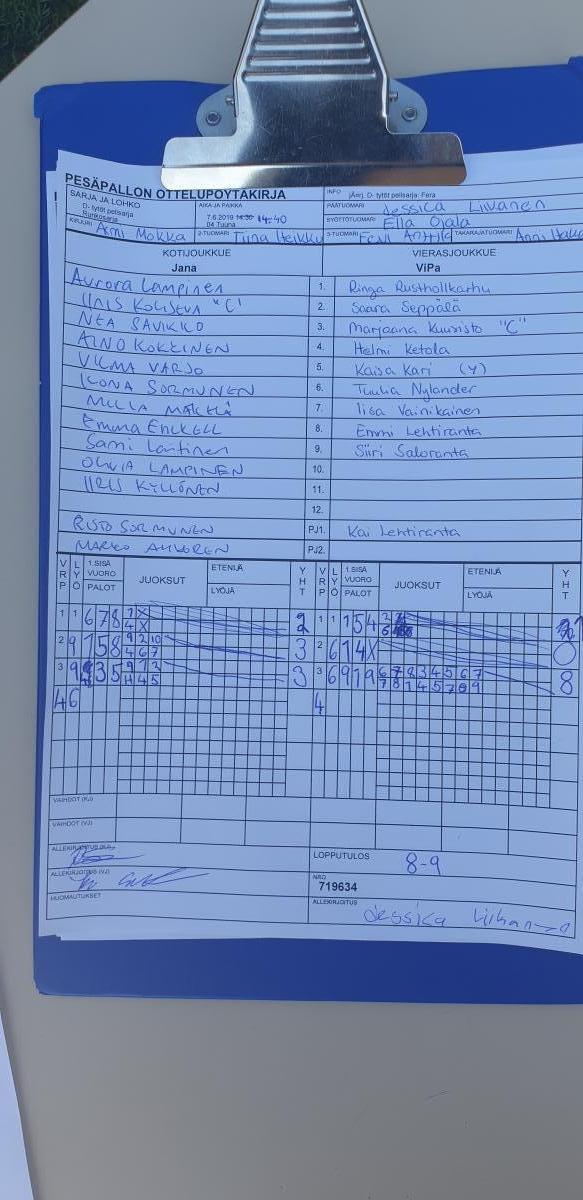 PESÄPALLON OTTELUPÖYTÄKIRJA
SARJA JA LOHKO
D- tytöt pelisarja
Runkosarja
AIKA JA PAIKKA
7.6.2019 14:30 14:40
04 Tuuna
INFO (Äm). D- tytöt pelisarja: Fera
PÄÄTUOMARI Jessica Liikanen
SYÖTTÖTUOMARI Ella Ojala
KIRJURI Mokka 2-TUOMARI Tiina Heikku 3-TUOMARI TAKARAJATUOMARI Anni
KOTIJOUKKUE VIERASJOUKKUE
Jana ViPa
Aurora Lampinen 1. Ringa Rusthollkarhu
IIRIS "C" 2. Saara Seppälä
NEA SAVIKKO 3. Marjaana Kuunisto "C"
AINO KOKKINEN 4. Helmi Ketola
VILMA VARJO 5. Kaisa Kari (Y)
ILONA SORMUNEN 6. Tuulia Nylander
MILLA MÄKELÄ 7. Iisa Vainikainen
Emma Enckell 8. Emmi Lehtiranta
Sami Laitinen 9. Siiri Saloranta
OLIVIA LAMPINEN 10.
IIRIS KYLLÖNEN 11.
12.
RISTO SORMUNEN PJ1. Kai Lehtiranta
MARKO AHLGREN PJ2.
VRP LYÖ 1.SISÄ VUORO PALOT JUOKSUT ETENIJÄ LYÖJÄ YHT VRP LYÖ 1.SISÄ VUORO PALOT JUOKSUT ETENIJÄ LYÖJÄ YHT
1 1 6 7 8 1 X 2 1 1 1 5 4
4 X
2 9 1 5 8 9 2 10 3 2 6 1 4 X 0
4 6 7
3 9 3 5 9 1 2 3 3 6 9 1 9 6 7 8 3 4 5 6 7 8
4 4 5 7 8 1 4 5 7 8 9
4 6 4
VAIHDOT (KJ)
VAIHDOT (VJ)
ALLEKIRJOITUS (KJ) LOPPUTULOS 8-9
ALLEKIRJOITUS (VJ) NRO 719634
HUOMAUTUKSET ALLEKIRJOITUS Jessica Liikanen